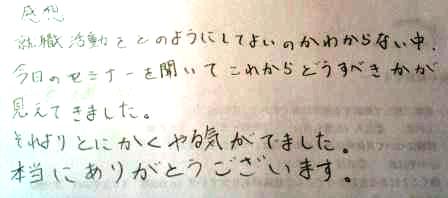 感想
就職活動をどのようにしてよいのかわからない中、
今日のセミナーを聞いてこれからどうすべきかが
見えてきました。
それよりとにかくやる気がでました。
本当にありがとうございます。